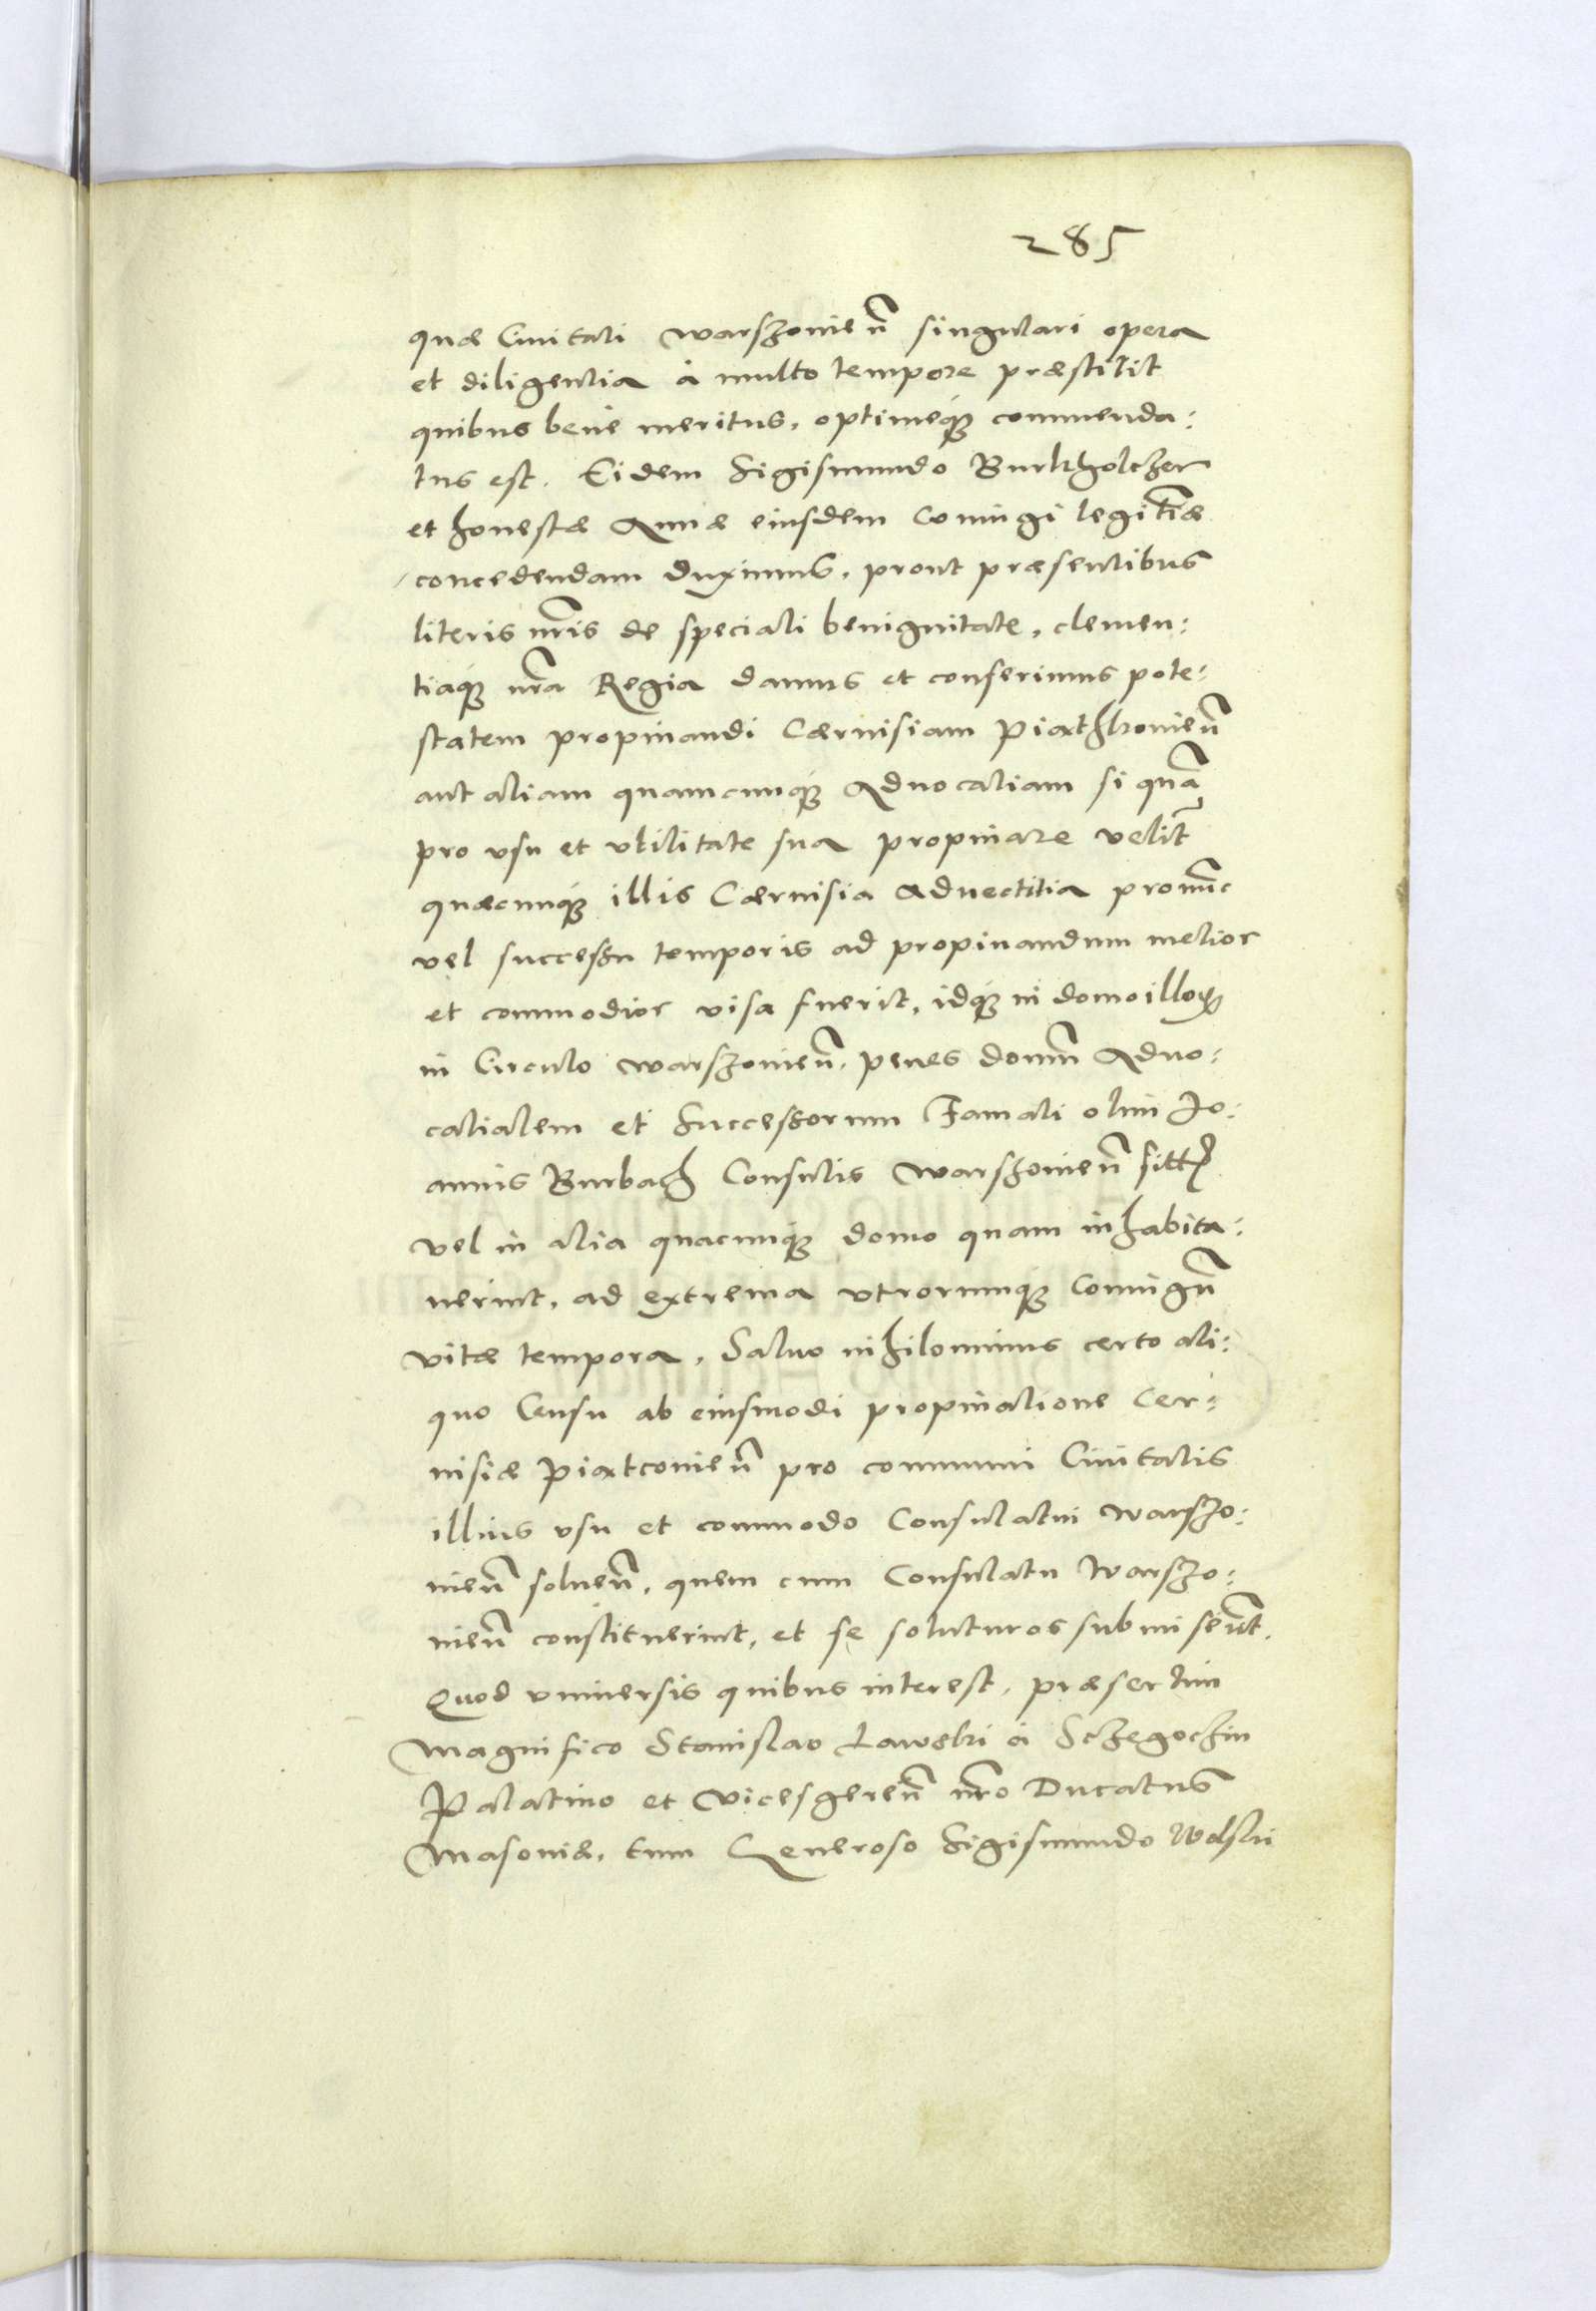 285
quæ Ciuitati warszouien̄ singulari opera
et diligentia à multo tempore præstitit
quibus bene meritus, optimeq́ue commenda:
tus est. Eidem Sigismundo Burkholczer
et honestæ Annæ eiusdem Coniugi legitĩæ
concedendam duximus, prout præsentibus
literis nr̃is de speciali benignitate, clemen:
tiaq́ue nr̃a Regia damus et conferimus pote:
statem propinandi Cæruisiam Piathkouien̄
aut aliam quamcunq́ue Aduocatiam si quã
pro vsu et vtilitate sua propinare velit̃
quæcunq́ue illis Cæruisia aduectitia pronũc
vel successu temporis ad propinandum melior
et commodior visa fuerit, idq́ue in domo illoꝝ
in Circulo warszouien̄, penes domũ Aduo:
catialem et Successorum Famati olim Jo:
annis Burbach Consulis warszouien̄ sitt̃
vel in alia quacunq́ue domo quam inhabita:
uerint, ad extrema vtrorumq́ue Coniugũ
vitæ tempora, Saluo nihilominus certo ali:
quo Censu ab eiusmodi propinatione Cer:
uisiæ Piatcouien̄ pro communi Ciuitatis
illius vsu et commodo Consulatui warszo:
uien̄ soluen̄, quem cum Consulatu warszo:
uien̄ constituerint, et se soluturos submiser̃t.
Quod vniuersis quibus interest, præsertim
Magnifico Stanislao Lawski à Sczegoczin
Palatino et Vicesgeren̄ nr̃o Ducatus
Masouiæ, tum Generoso Sigismundo Wolski